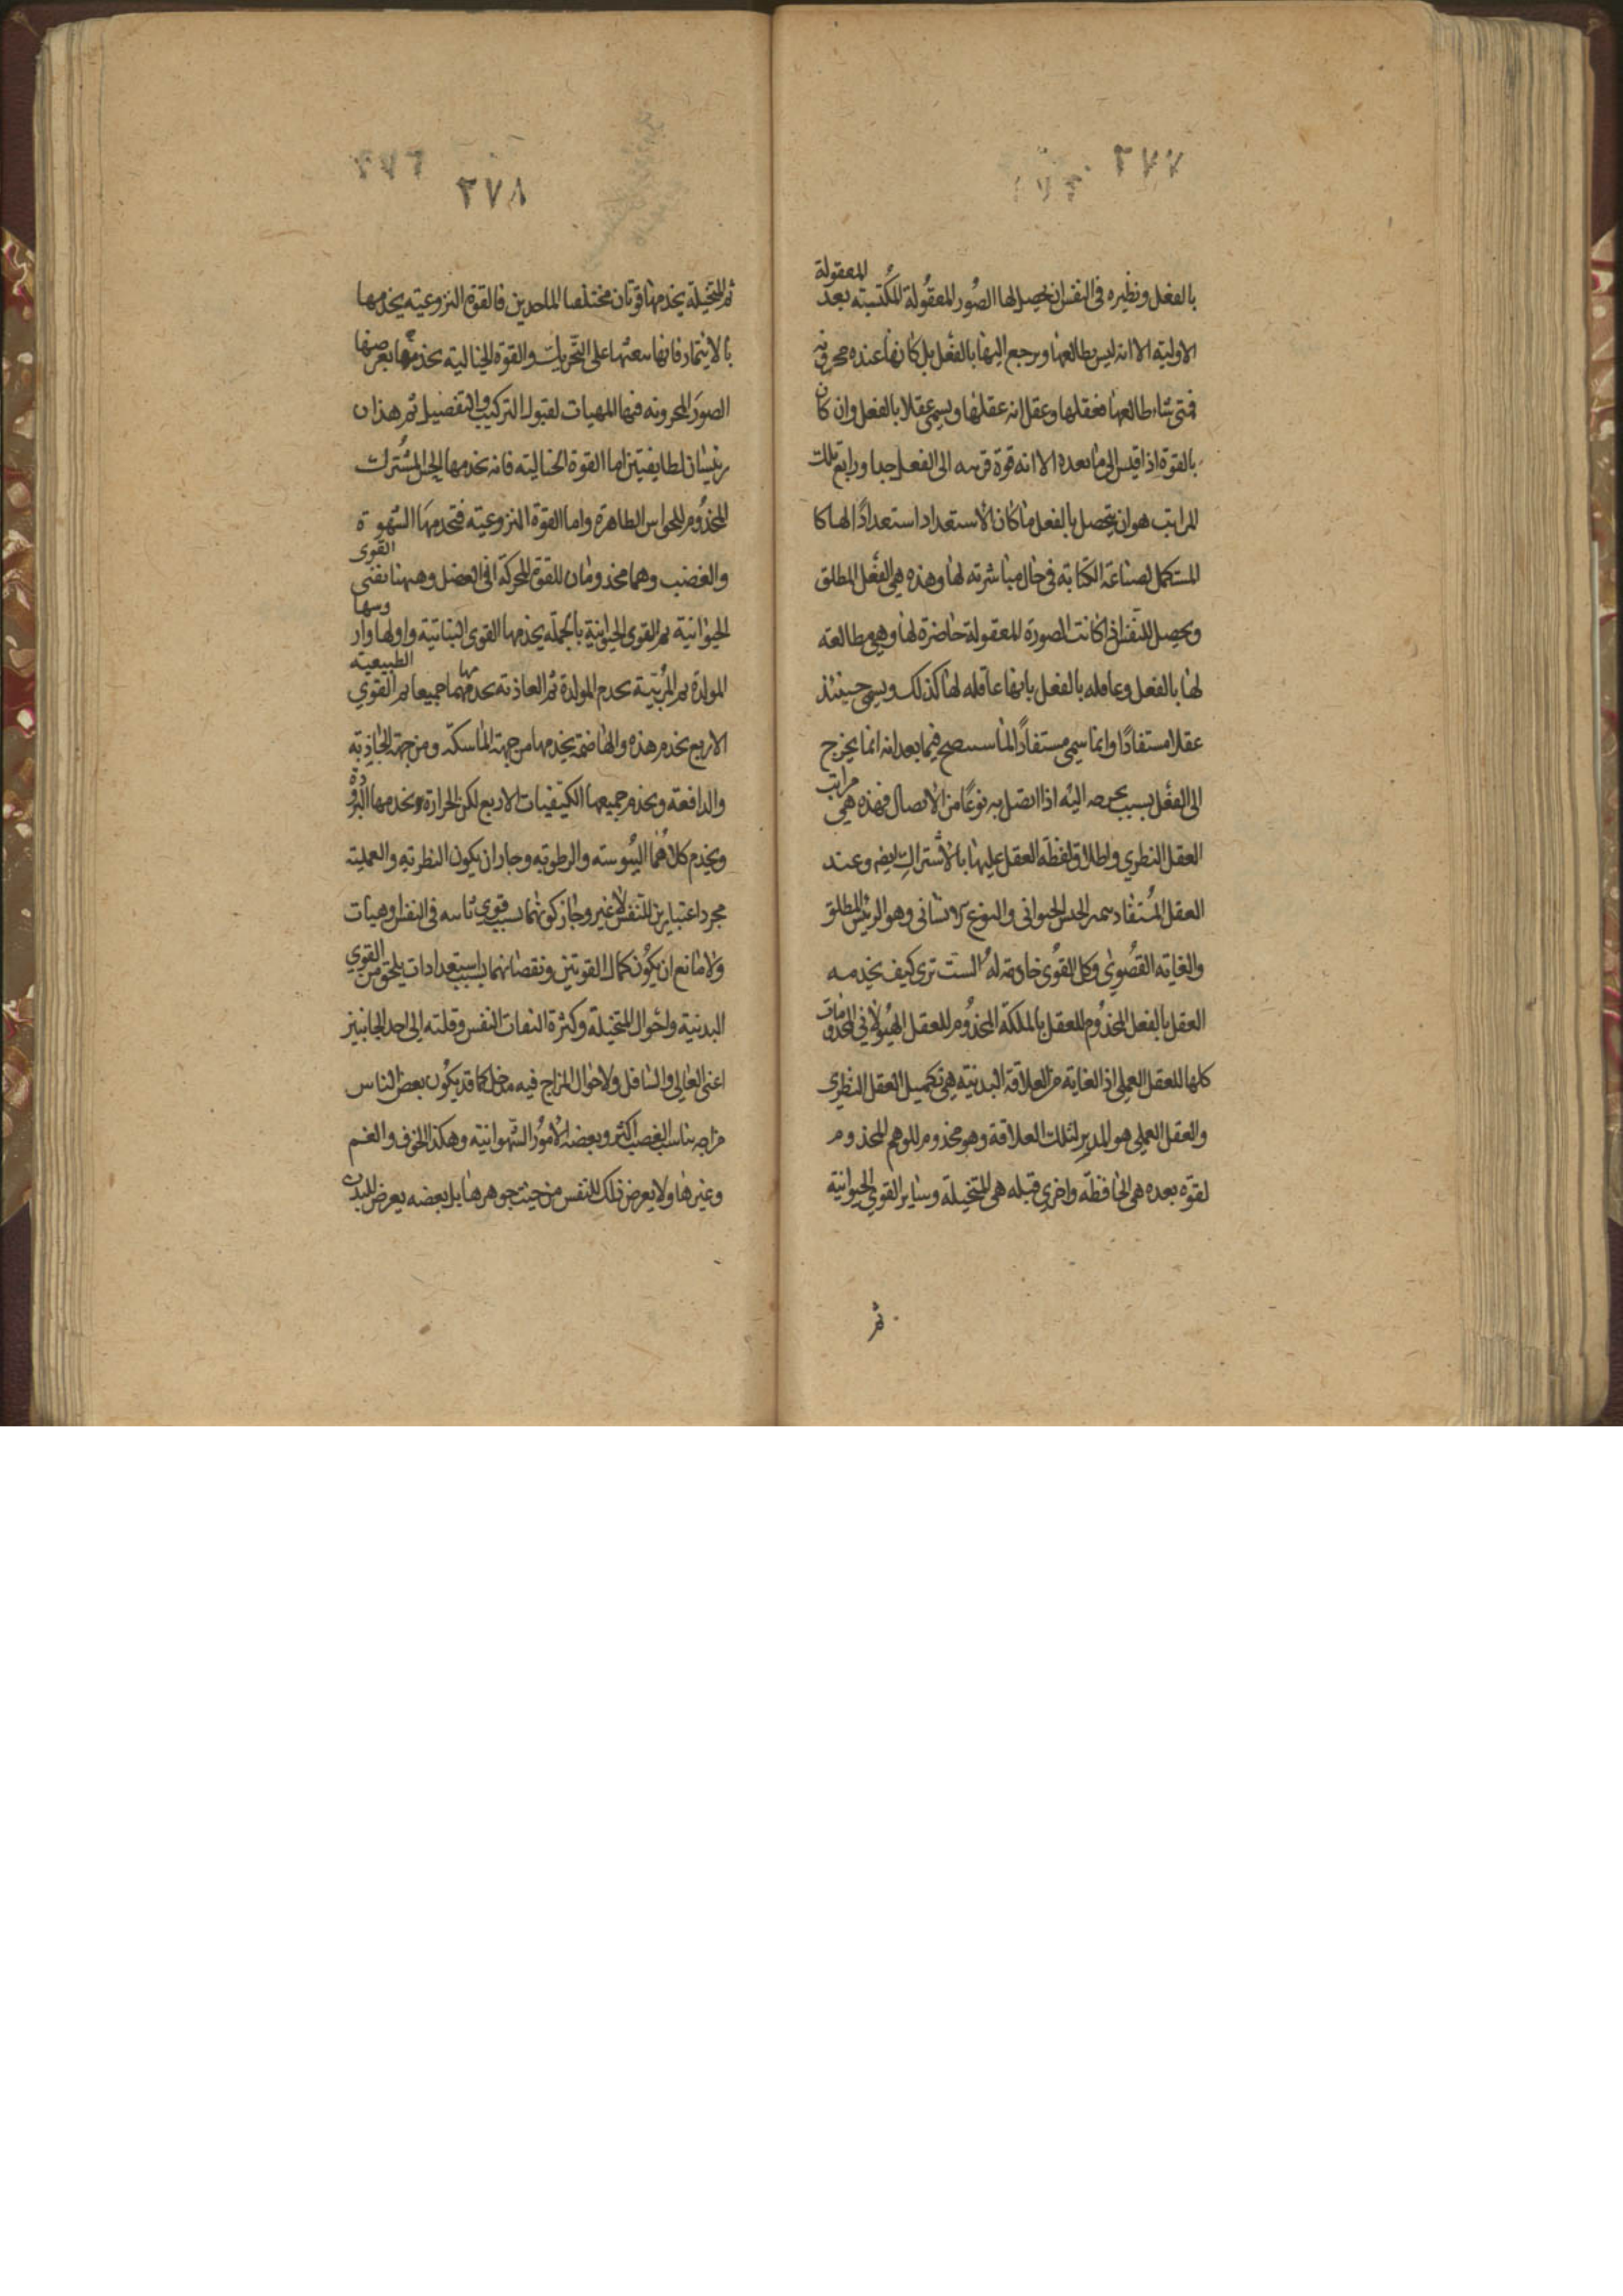 ٢٧٧
المعقولة
بالفعل ونظيره فى النفس ان يحصل لها الصُور المعقُولة المكُتسبة بعد
الاولية الا انه ليس يطالعها ويرجع اليها بالفعل بل كانها عنده مخزونه
فمتى شاء طالعها فعقلها وعقل انه عقلها ويسمى عقلا بالفعل وان كان
بالقوة اذا قيس الى ما بعده الا انه قوة قريبه الى الفعل جدا ورابع تلك
المراتب هو ان يتحصل بالفعل ما كان الاستعداد استعدادًا لها كا
المستكمل لصناعة الكتابة فى حال مباشرته لها وهذه هى الفعل المطلق
ويحصل للنفس اذا كانت الصورة المعقولة حاضرة لها وهى مطالعة
لها بالفعل وعاقله بالفعل بانها عاقله لها كذلك ويسمى حينئذ
عقلا مستفادًا وانما سمى مستفادًا لما سيتضح فيما بعد انه انما يخرج
الى الفعل بسبب يخرجه اليه اذا اتصل به نوعًا من الاتصال فهذه هى مراتب
العقل النظري واطلاق لفظة العقل عليها بالاشتراك ايضا وعند
العقل المُستفاد يتم الجنس الحيوانى والنوع الانسانى وهو الرئيس المطلق
والغاية القصُوى وكل القوُى خادمة لهُ الست ترى كيف يخدمه
العقل بالفعل المخدُوم للعقل بالملكة المخدُوم للعقل الهيُولانى المخدومات
كلها للعقل العملى اذ الغاية من العلاقة البدنية هى تكميل العقل النظرى
والعقل العملى هو المدبر لتلك العلاقة وهو مخدوم للوهم المخدوم
لقوة بعده هى الحافظة واخرى قبله هى المتخيلة وساير القوى الحيوانية
ثم
٢٧٨
ثم المتخيلة يخدمها قوتان مختلفا الماخذين فالقوة النزوعية يخدمها
بالايتمار فانها تبعثها على التحريك والقوة الخيالية يخدمها بعرضها
الصوَر المخزونه فيها المهيات لقبول التركيب والتفصيل ثم هذان
رئيسان لطايفتين اما القوة الخيالية فانه يخدمها الحس المشُترك
المخدُوم للحواس الظاهرة واما القوة النزوعية فتخدمهَا الشهوة
والغضب وهما مخدومان للقوة المحركة التى فى العضل وههنا تفنى القوى
الحيوانية ثم القوى الحيوانية بالجملة يخدمها القوى النباتية واولها وراسها
المولدة ثم المُربية تخدم المولدة ثم الغاذية تخدمهما جميعا ثم القوي الطبيعية
الاربع يخدم هذه والهاضمة يخدمها من جهة الماسكة ومن جهة الجاذبة
والدافعة ويخدم جميعها الكيفيات الاربع لكن الحرارة يخدمها البرودة
ويخدم كلاهُما اليبُوسة والرطوبة وجاز ان يكون النظرية والعملية
مجرد اعتبارين للنفس لا غير وجاز كونهما بسبب قوى ثابته فى النفس وهيات
ولا مانع ان يكوُن كمال القوتين ونقصانهما بسبب استعدادات يلحق من القوي
البدنية واحُوال المتخيلة وكثرة التفات النفس وقلته الى احد الجانبين
اعنى العالى والسافل ولاحوال المزاج فيه مدخل كما قد يكُون بعض الناس
مزاجه يناسب الغضب اكثر وبعضه الامُور الشهوانية وهكذا الخوف والغم
وغيرها ولا يعرض ذلك للنفس من حيث جوهرها بل بعضه يعرض للبدن